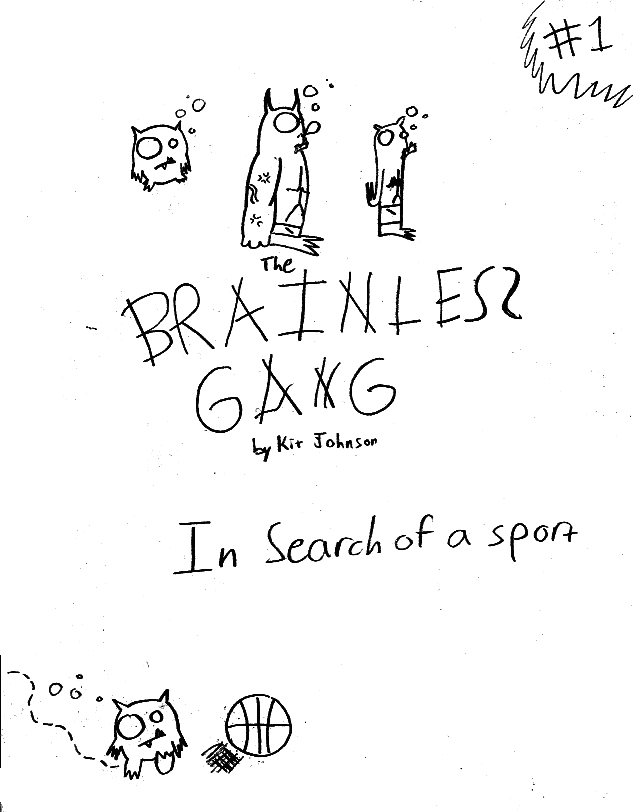 #1
The
BRAINLESS
GANG
by Kit Johnson
In Search of a sport